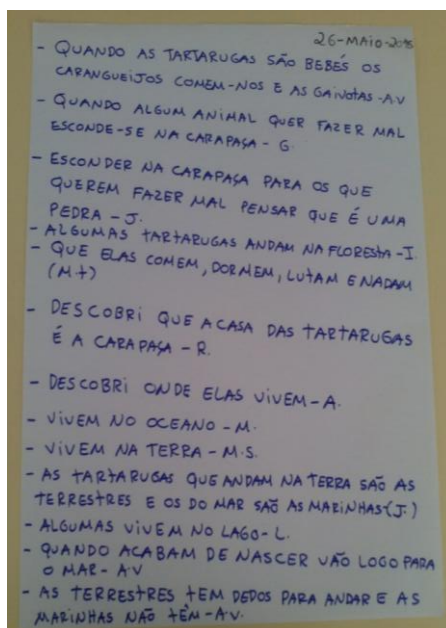 26-MAIO-2015
- QUANDO AS TARTARUGAS SÃO BEBÉS OS
CARANGUEIJOS COMEM-NOS E AS GAIVOTAS-A.V
- QUANDO ALGUM ANIMAL QUER FAZER MAL
ESCONDE-SE NA CARAPAÇA - G.
- ESCONDER NA CARAPAÇA PARA OS QUE
QUEREM FAZER MAL PENSAR QUE É UMA
PEDRA - J.
- ALGUMAS TARTARUGAS ANDAM NA FLORESTA - I.
- QUE ELAS COMEM, DORMEM, LUTAM E NADAM
(M+)
- DESCOBRI QUE A CASA DAS TARTARUGAS
É A CARAPAÇA - R.
- DESCOBRI ONDE ELAS VIVEM - A.
- VIVEM NO OCEANO - M.
- VIVEM NA TERRA - M.S.
- AS TARTARUGAS QUE ANDAM NA TERRA SÃO AS
TERRESTRES E OS DO MAR SÃO AS MARINHAS (J.)
- ALGUMAS VIVEM NO LAGO - L.
- QUANDO ACABAM DE NASCER VÃO LOGO PARA
O MAR - A.V
- AS TERRESTRES TEM DEDOS PARA ANDAR E AS
MARINHAS NÃO TÊM - A.V.